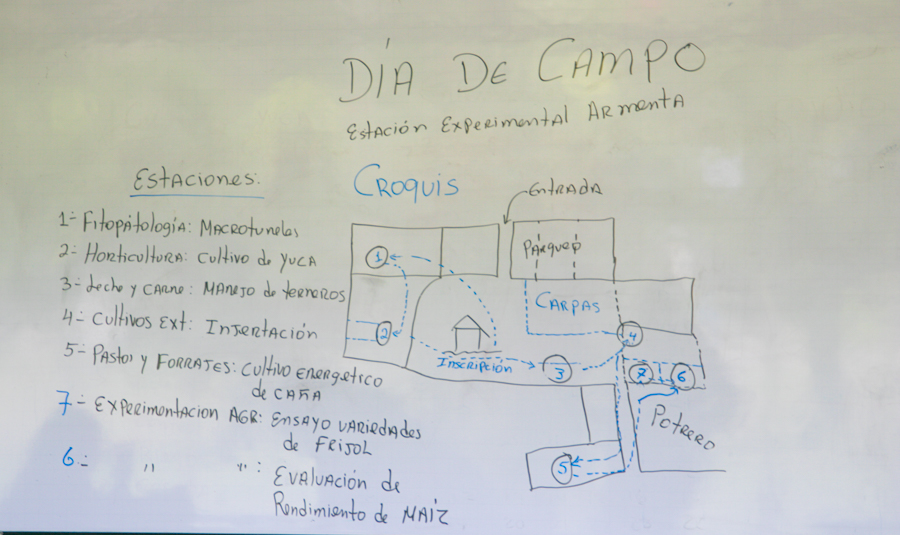 DÍA DE CAMPO
Estación Experimental Armenta
Estaciones:
1- Fitopátología: Macrotuneles
2- Horticultura: Cultivo de yuca
3- Leche y Carne: Manejo de terneros
4- Cultivos Ext: Injertación
5- Pastos y Forrajes: Cultivo energético
de caña
7- Experimentacion Agr: Ensayo variedades
de Frijol
6- " " : Evaluación de
Rendimiento de Maíz
Croquis
Entrada
Parqueo
Carpas
1
2
Inscripción
3
4
7
6
Potrero
5